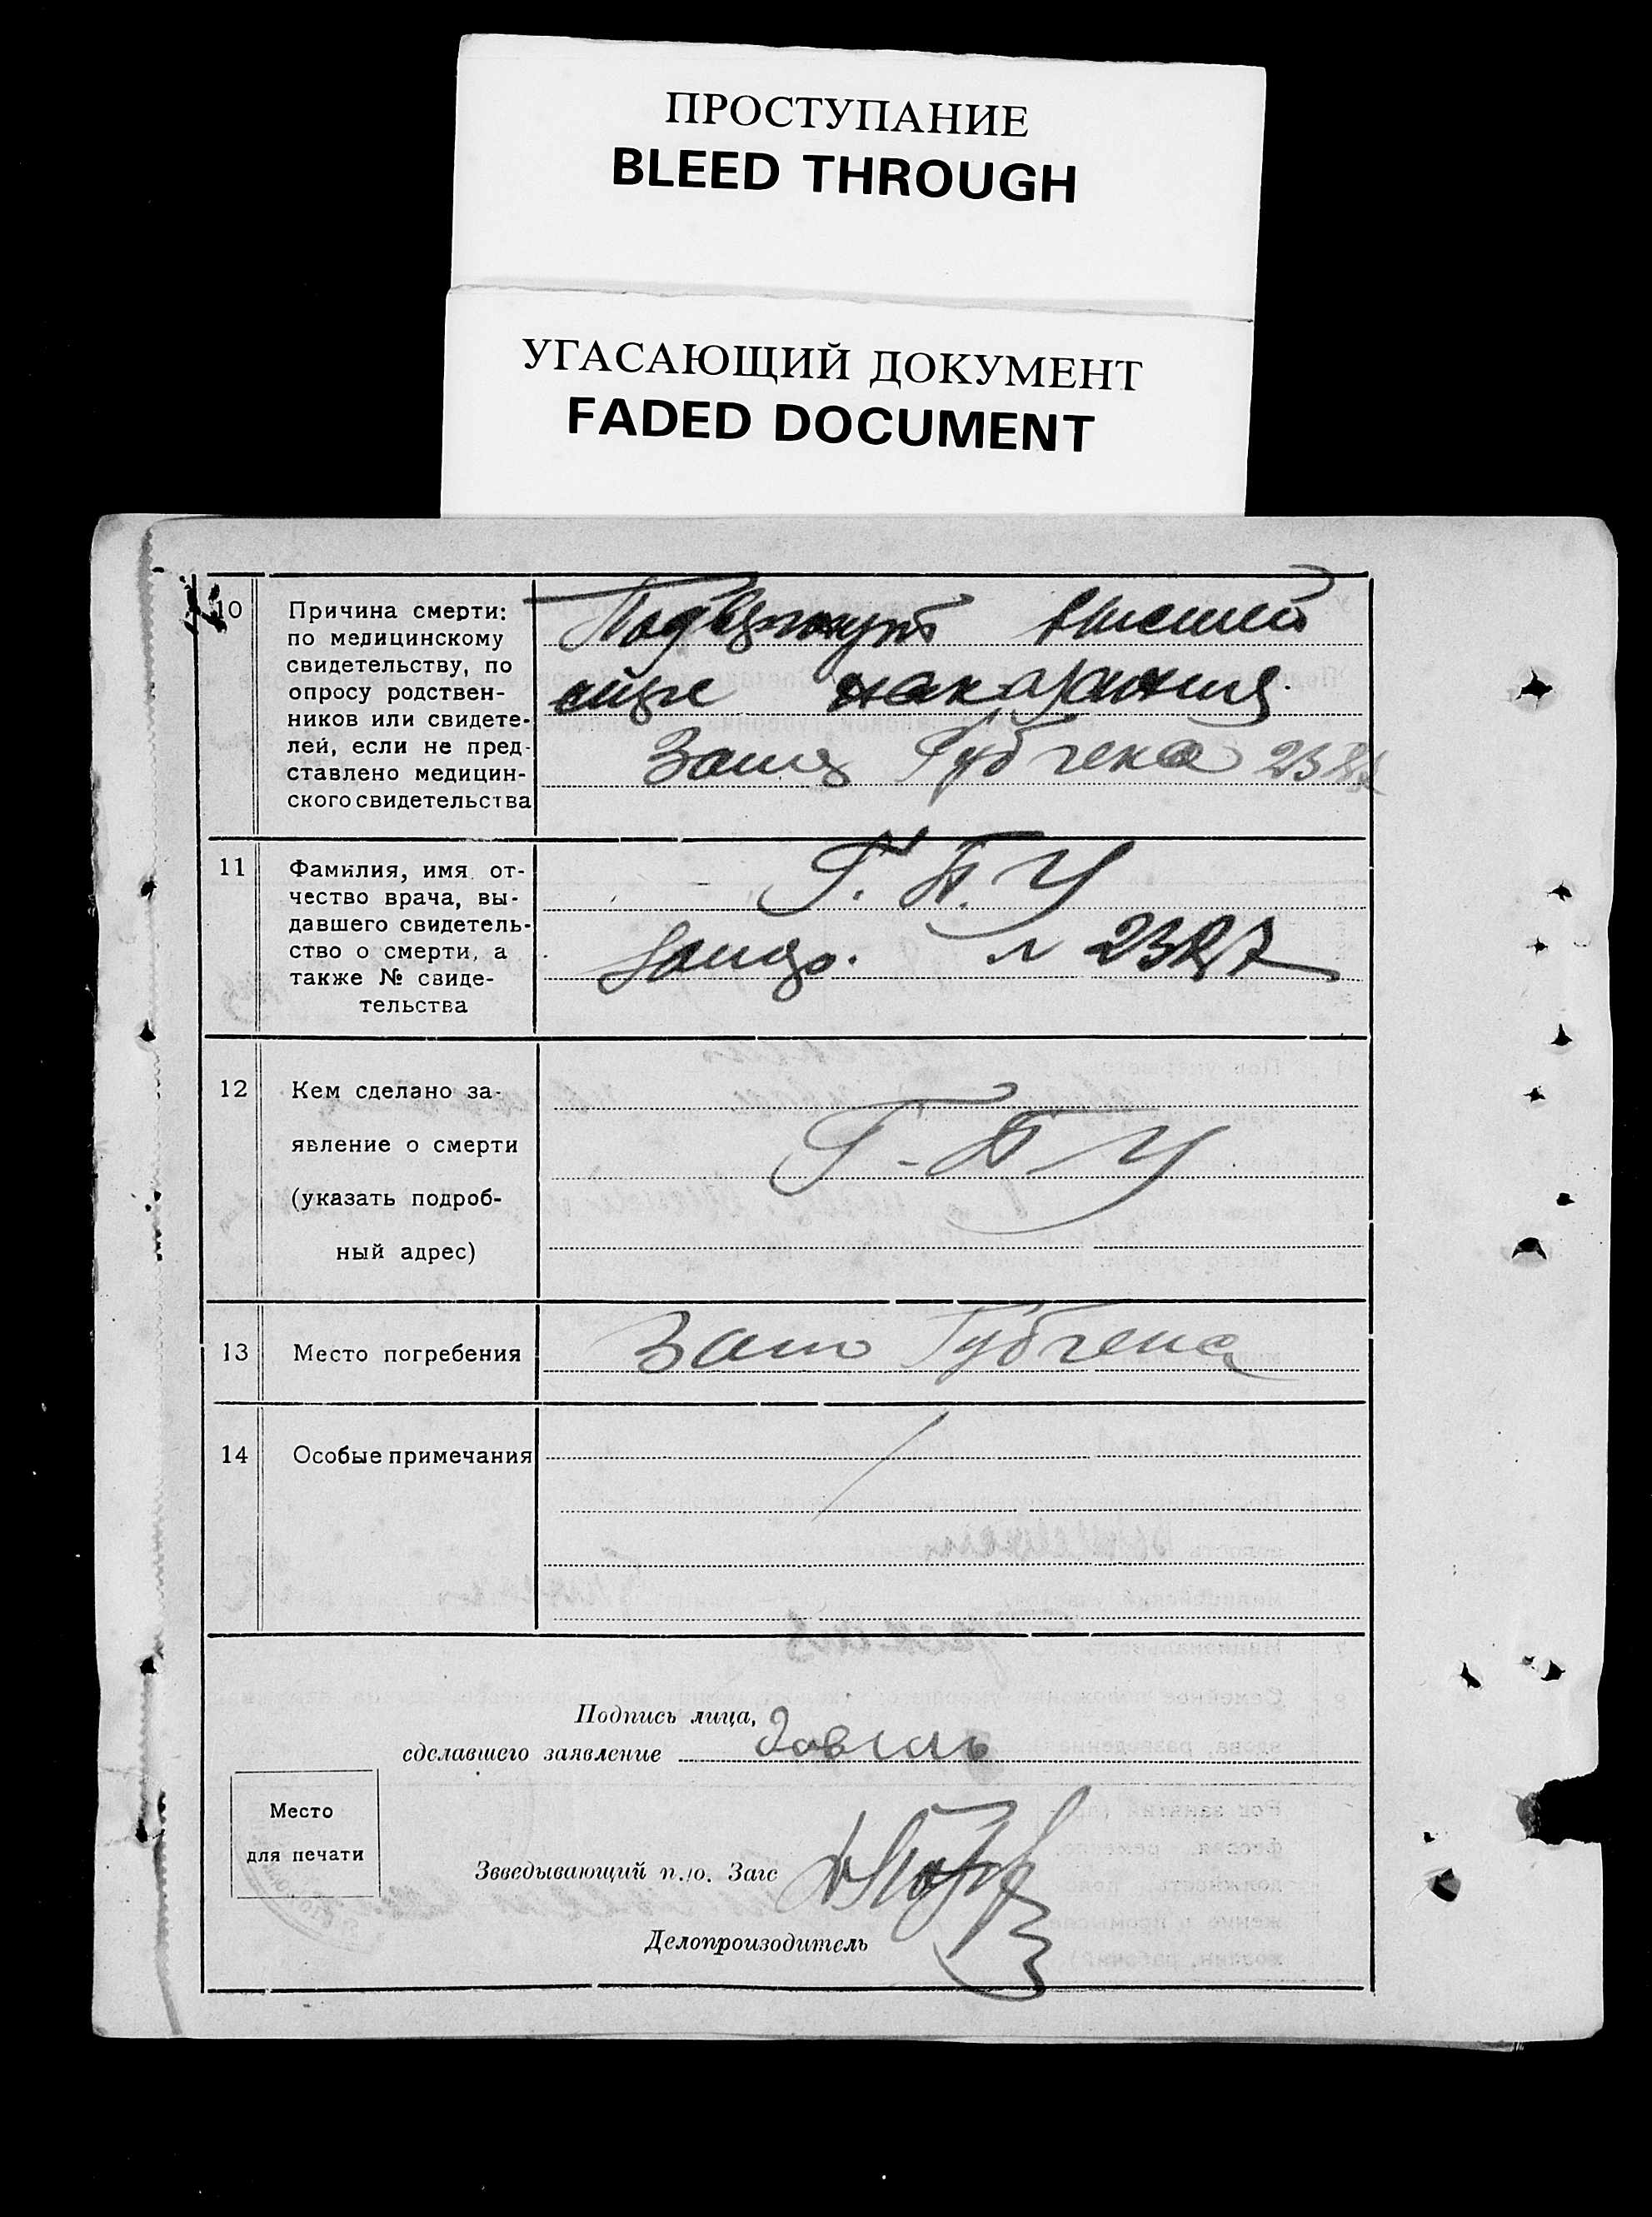 ПРОСТУПАНИЕ
BLEED THROUGH
УГАСАЮЩИЙ ДОКУМЕНТ
FADED DOCUMENT
10
Причина смерти:
по медицинскому
свидетельству, по
опросу родствен-
ников или свидете-
лей, если не пред-
ставлено медицин-
ского свидетельства
Подвергнут высшей
мере наказания
Губчека
11
Фамилия, имя, от-
чество врача, вы-
давшего свидетель-
ство о смерти, а
также № свиде-
тельства
Г.П.У
12
Кем сделано за-
явление о смерти
(указать подроб-
ный адрес)
Г.П.У
13
Место погребения
Губчека
14
Особые примечания
Подпись лица,
сделавшего заявление
Место
для печати
Зведывающий п./о. Загс
Делопроизводитель